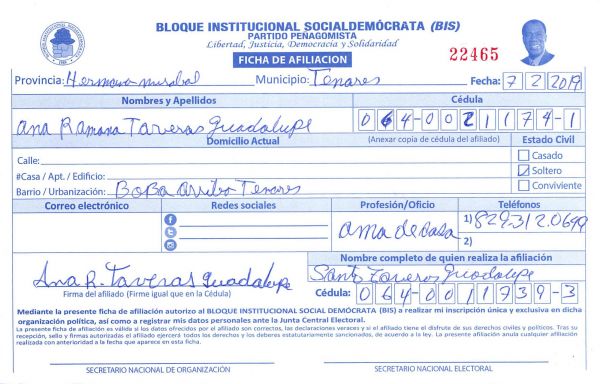 BLOQUE INSTITUCIONAL SOCIALDEMÓCRATA (BIS)
PARTIDO PEÑAGOMISTA
Libertad, Justicia, Democracia y Solidaridad
FICHA DE AFILIACION
22465
Provincia: Hermana mirabal Municipio: Tenares Fecha: 7 2 2019
Nombres y Apellidos Cédula
Ana Ramona Taveras Guadalupe 064-0021174-1
Domicilio Actual (Anexar copia de cédula del afiliado) Estado Civil
Calle: Casado
#Casa / Apt. / Edificio: Soltero
Barrio / Urbanización: BoBa arriba Tenares Conviviente
Correo electrónico Redes sociales Profesión/Oficio Teléfonos
ama de casa 1) 829.312.0699
2)
Nombre completo de quien realiza la afiliación
Ana R. Taveras Guadalupe Guadalupe
Firma del afiliado (Firme igual que en la Cédula) Cédula: 064-0011739-3
Mediante la presente ficha de afiliación autorizo al BLOQUE INSTITUCIONAL SOCIAL DEMÓCRATA (BIS) a realizar mi inscripción única y exclusiva en dicha
organización política, así como a registrar mis datos personales ante la Junta Central Electoral.
La presente ficha de afiliación es válida si los datos ofrecidos por el afiliado son correctos, las declaraciones veraces y si el afiliado tiene el disfrute de sus derechos civiles y políticos. Tras su
recepción, sello y firmas autorizadas el afiliado ejercerá todos los derechos y los deberes estatutariamente sancionados, de acuerdo a la ley. La presente afiliación anula cualquier afiliación
realizada con anterioridad a la fecha que aparece en esta ficha.
SECRETARIO NACIONAL DE ORGANIZACIÓN SECRETARIO NACIONAL ELECTORAL